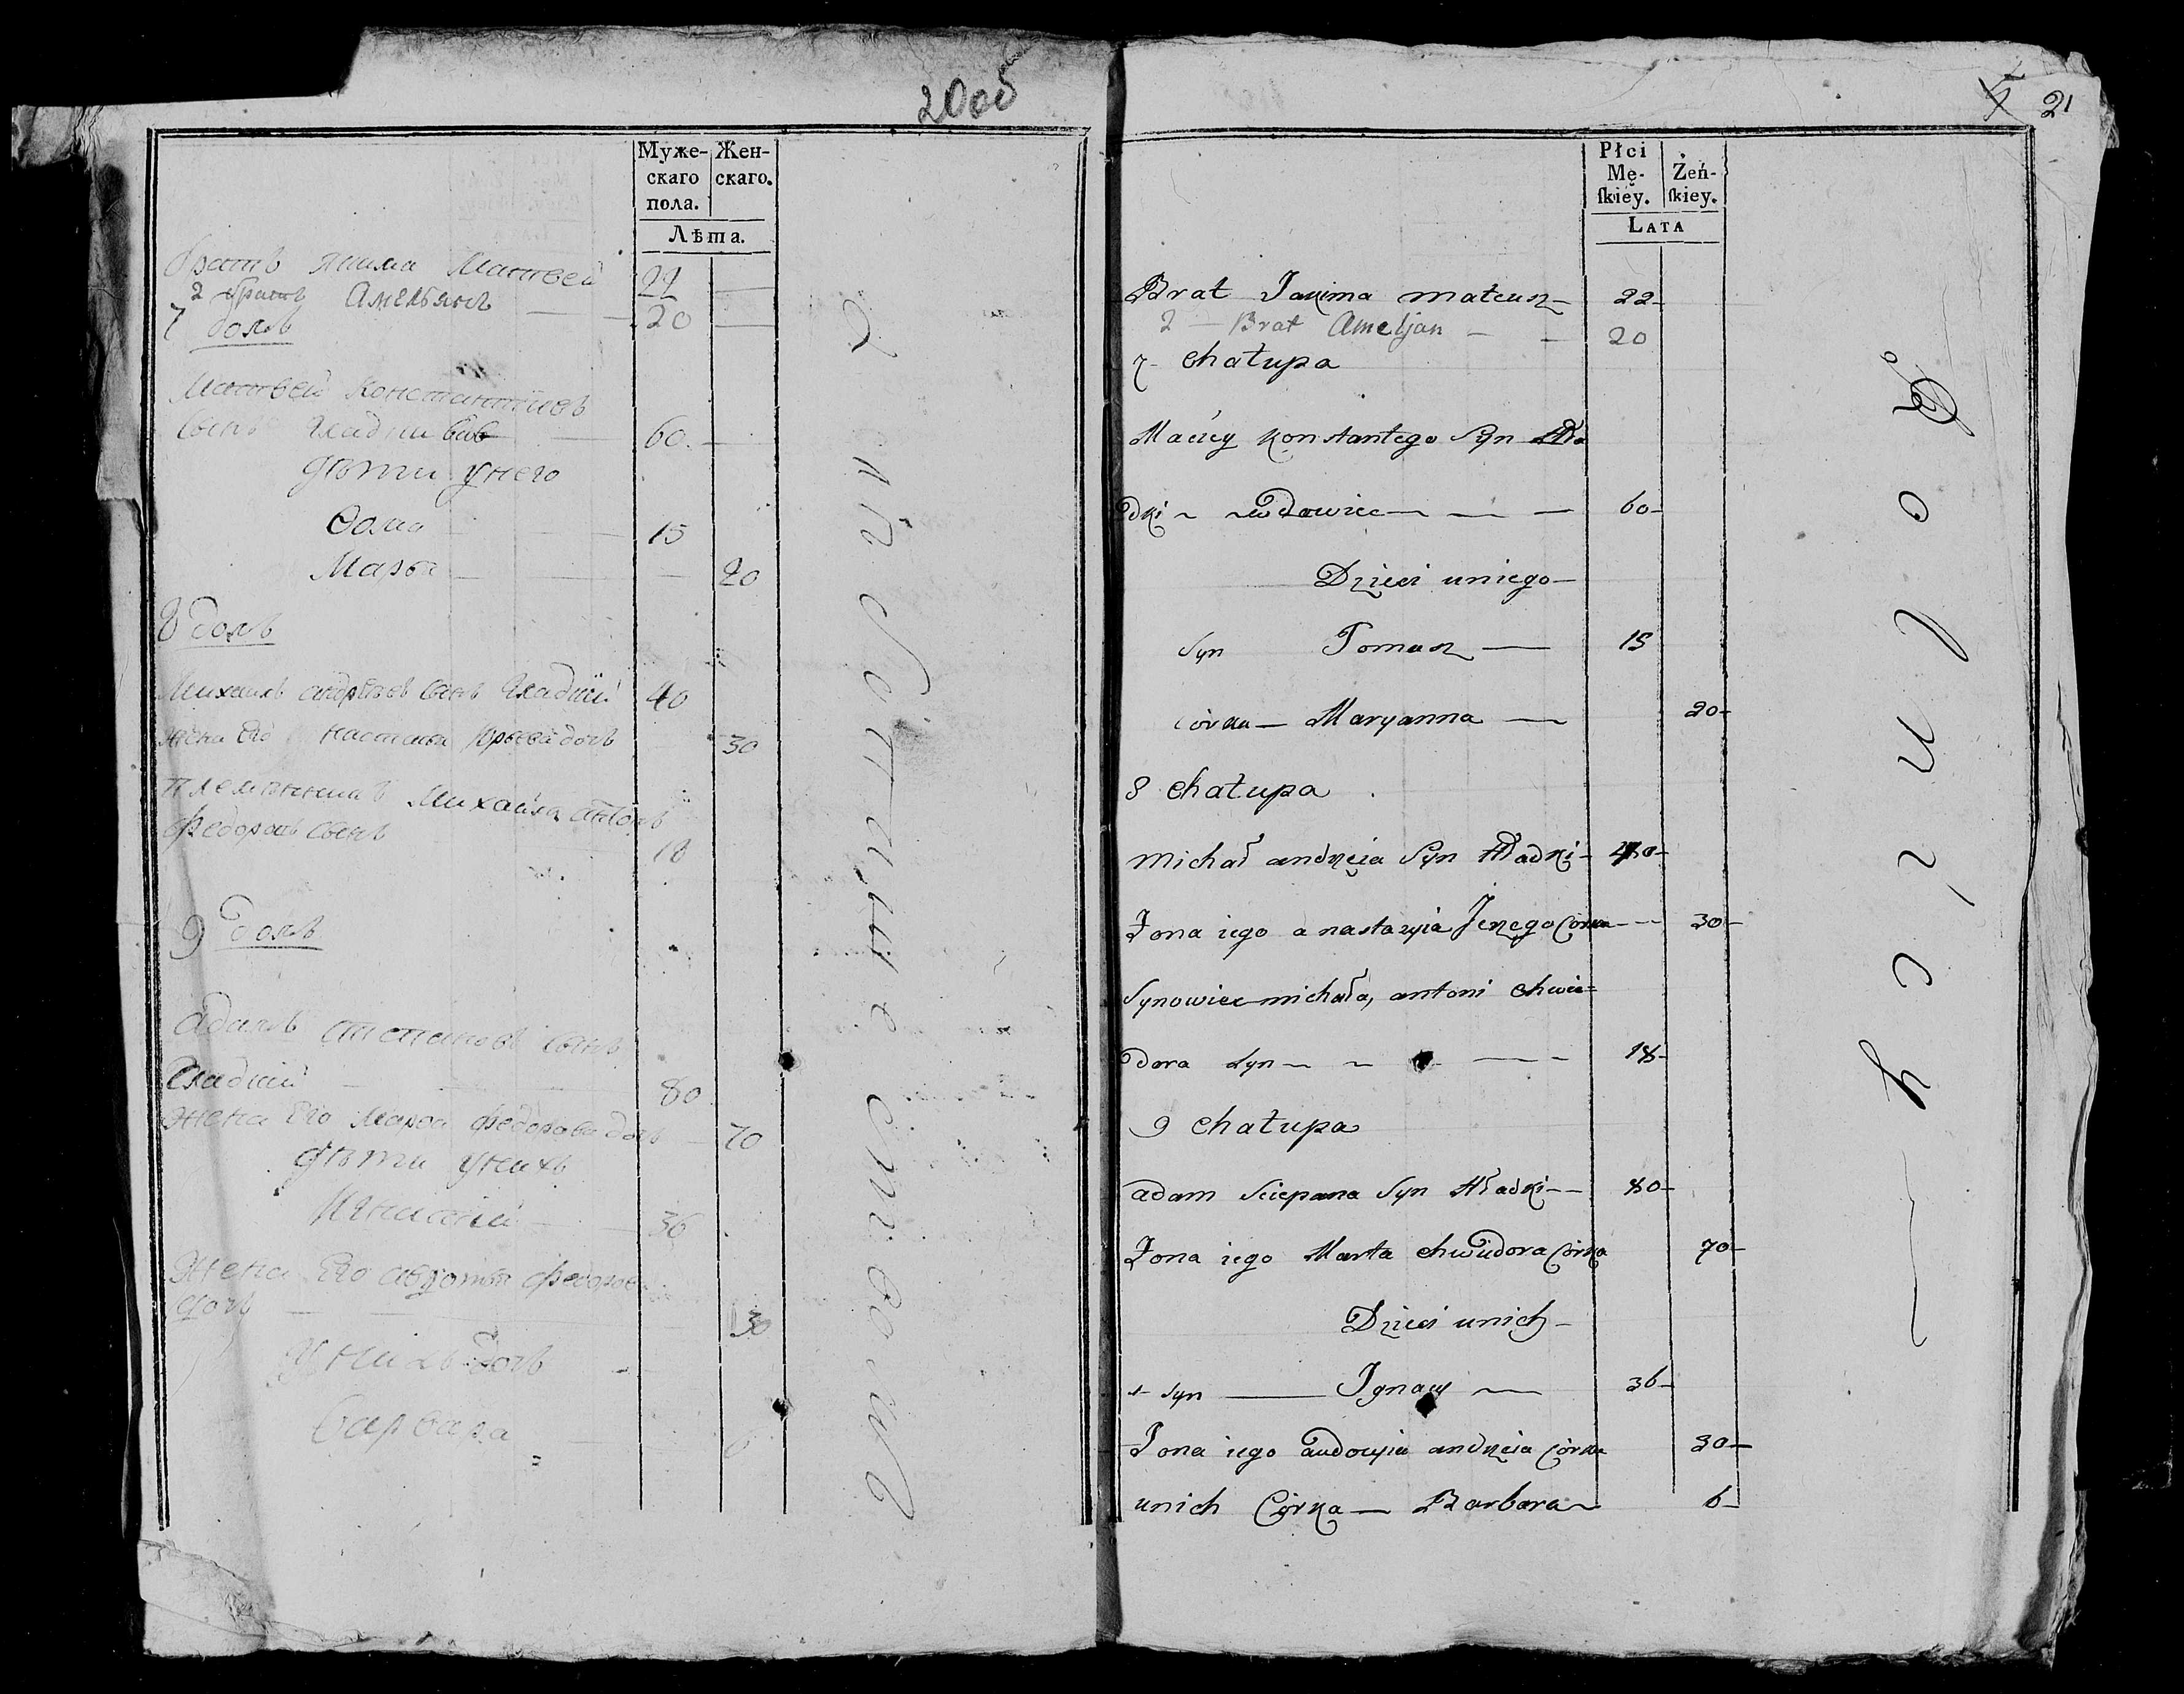 20об
Муже-
скаго
пола.
Жен-
скаго.
Лѣта.
братъ якима Матвей 22
2 братъ Амельянъ 20
7 домъ
Матвей Константиновъ
сынъ Гладкий 60
дѣти унего
Ѳома 15
Марья 20
8 домъ
Михаилъ андрѣевъ сынъ Гладкий 40
жена Его Настасья Юрьева дочь 30
племянникъ Михайла антонъ
Федоровъ сынъ 18
9 домъ
Адамъ степановъ сынъ
Гладкий 80
жена Его Марфа федорова дочь 70
дѣти унихъ
Игнатий 36
Жена Его авдотья
дочь 30
унихъ дочь
Варвара 6
21
Płci
Mę-
ſkiéy.
Żeń-
ſkiey.
LATA
Brat Jakima mateusz 22
2 - Brat Ameljan - - 20
7- Chałupa
Maciey Konstantego Syn Hła
dki ~ wdowiec 60
Dzieci uniego
Syn Tomasz 15
córka Maryanna 20
8 Chałupa
Michał andrzeia Syn Hładki 40
Żona iego anastazyia Jerzego Córka 30
Synowiec michała, antoni Chwie=
dora Syn 18
9 Chałupa
adam Sciepana Syn Hładki 80
Żona iego Marta Chwiedora Córka 70
Dzieci unich
syn Ignacy 36
Żona iego audocyia andrzeia Córka 30
unich Córka Barbara 6